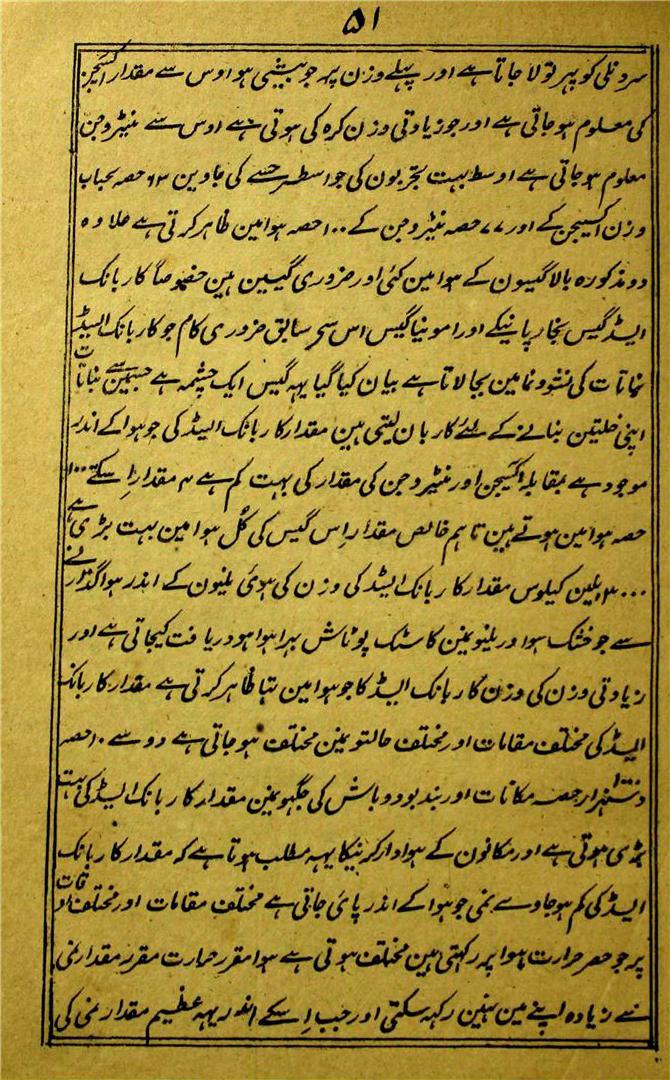 ۵۱
سرو نلی کو پہر تولا جاتا ہے اور پہلے وزن پہ جو بیشی ہو اوس سے مقدار اکسیجن
کی معلوم ہو جاتی ہے اور جو زیادتی وزن کرہ کی ہوتی ہے اوس سے نیٹروجن
معلوم ہو جاتی ہے اوسط بہت تجربون کی جو اسطرحسے کی جاوین ۲۳ حصہ بحساب
وزن اکسیجن کے اور ۷۷ حصہ نیٹروجن کے ۱۰۰ حصہ ہوا مین ظاہر کرتی ہے علاوہ
دو مذکورہ بالا گیسون کے ہوا مین کئی اور ضروری گیسین ہین خصوصاً کاربانک
ایسڈ گیس بخار پانیکے اور امونیا گیس اس سے سابق ضروری کام جو کاربانک ایسڈ
نباتات کی نشوونما مین بجا لاتا ہے بیان کیا گیا یہہ گیس ایک چشمہ ہے جسمین سے نباتات
اپنی خلتین بنانے کے لئے کاربان لیتی ہین مقدار کاربانک ایسڈ کی جو ہوا کے اندر
موجود ہے بمقابلہ اکسیجن اور نیٹروجن کی مقدار کی بہت کم ہے ۴ مقدار اسکے ۱۰۰۰۰
حصہ ہوا مین ہوتے ہین تاہم خالص مقدار اِس گیس کی کُل ہوا مین بہت بڑی ہے
۳۰۰۰ بلین کیلوس مقدار کاربانک ایسڈ کی وزن کی ہوئی نلیون کے اندر ہوا گذارنے
سے جو خشک ہو اور نلیونمین کاسٹک پوٹاش بہرا ہوا ہو دریافت کیجاتی ہے اور
زیادتی وزن کی وزن کاربانک ایسڈ کا جو ہوا مین تہا ظاہر کرتی ہے مقدار کاربانک
ایسڈ کی مختلف مقامات اور مختلف حالتونمین مختلف ہو جاتی ہے دو سے ۱۰ حصہ
دسہزار حصہ مکانات اور بند بودوباش کی جگہونمین مقدار کاربانک ایسڈ کی بہت
بڑی ہوتی ہے اور مکانون کے ہوادار کرنیکا یہہ مطلب ہوتا ہے کہ مقدار کاربانک
ایسڈ کی کم ہو جاوے نمی جو ہوا کے اندر پائی جاتی ہے مختلف مقامات اور مختلف اوقات
پر جو حصر حرارت ہوا پر رکہتی ہین مختلف ہوتی ہے ہوا مقرر حرارت مقرر مقدار نمی
سے زیادہ اپنے مین نہین رکہہ سکتی اور جب اِسکے اندر یہہ عظیم مقدار نمی کی